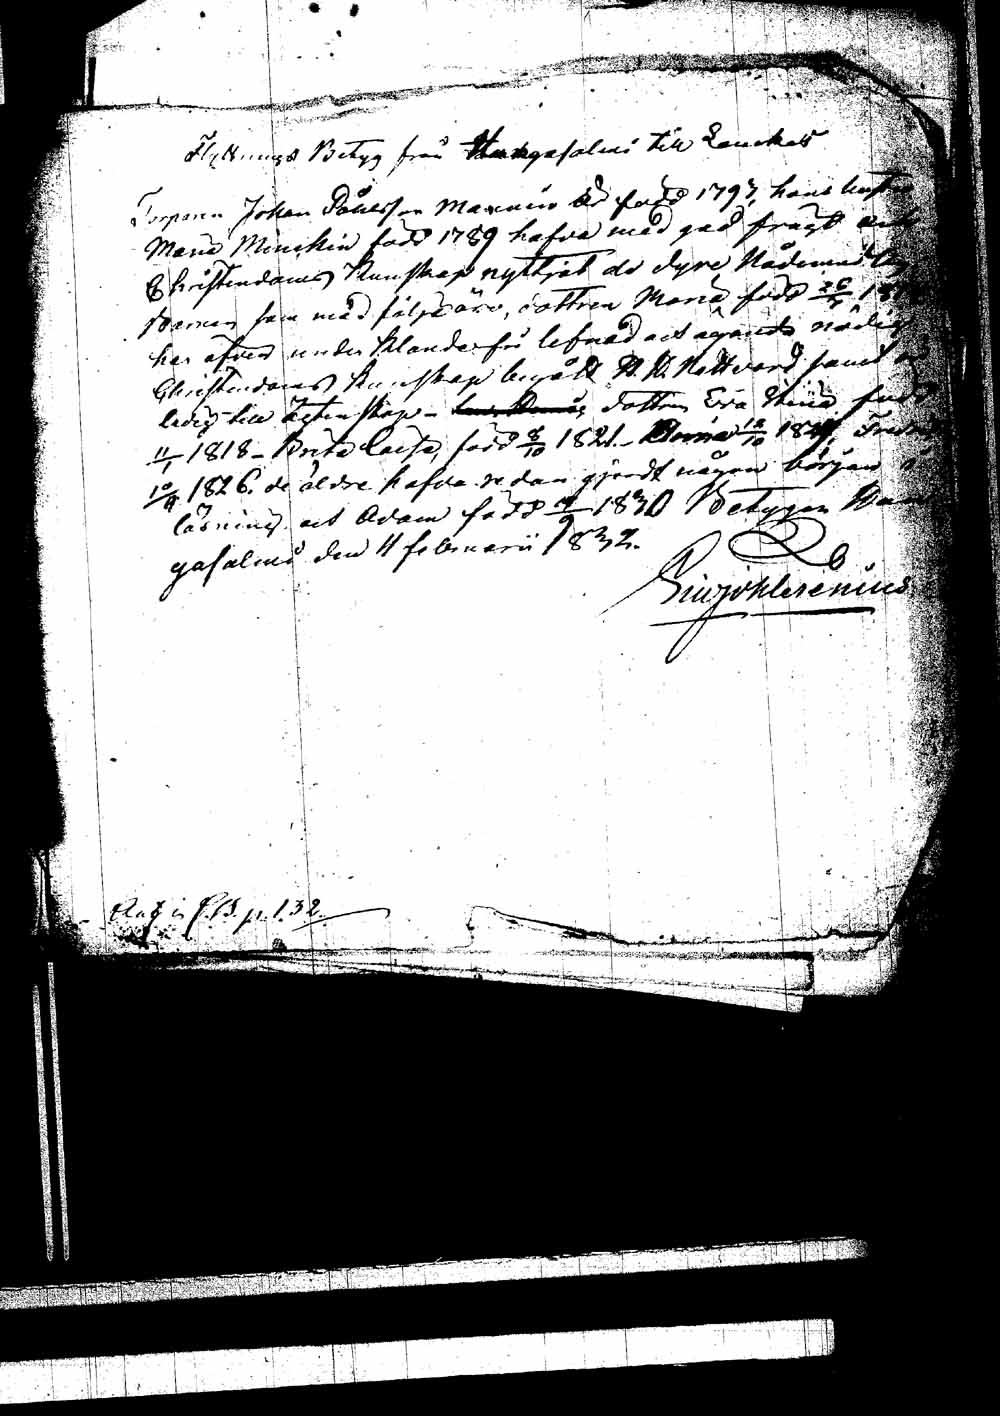 Flyttnings Betyg från Kangasalmi till Lauckas
Torparen Johan Påhlsson Mannin är född 1793, hans hustru
Maria Minckin född 1789 hafva med god frägd och
Christendoms Kunskap nyttjat de dyre Nådemedlen
Barnen som med följa äro, dottren Maria född
har äfven under Klanderfri lefnad och ägande nödig
Christendoms Kunskap begått H. H. Nattvard samt är
ledig till ägtenskap - dottren Eva Stina född
11/1 1818 - Brita Caisa, född 8/10 1821 - 12/10 Fredric
10/9 1826. de äldre hafva redan gjordt någon början i
läsning och Adam född 1830 Betygar Kan
gasalmi den 4 februarii 1832.
p. 132.